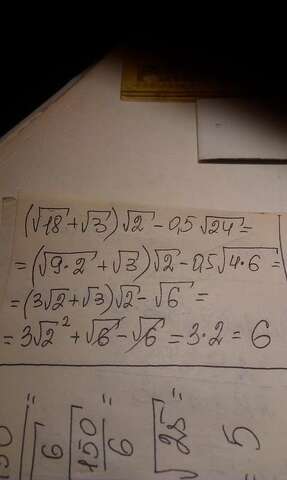 (√18 + √3)√2 - 0,5√24 =
= (√9·2 + √3)√2 - 0,5√4·6 =
= (3√2 + √3)√2 - √6 =
= 3√2² + √6 - √6 = 3·2 = 6
=
6
√150
6
√25 =
= 5